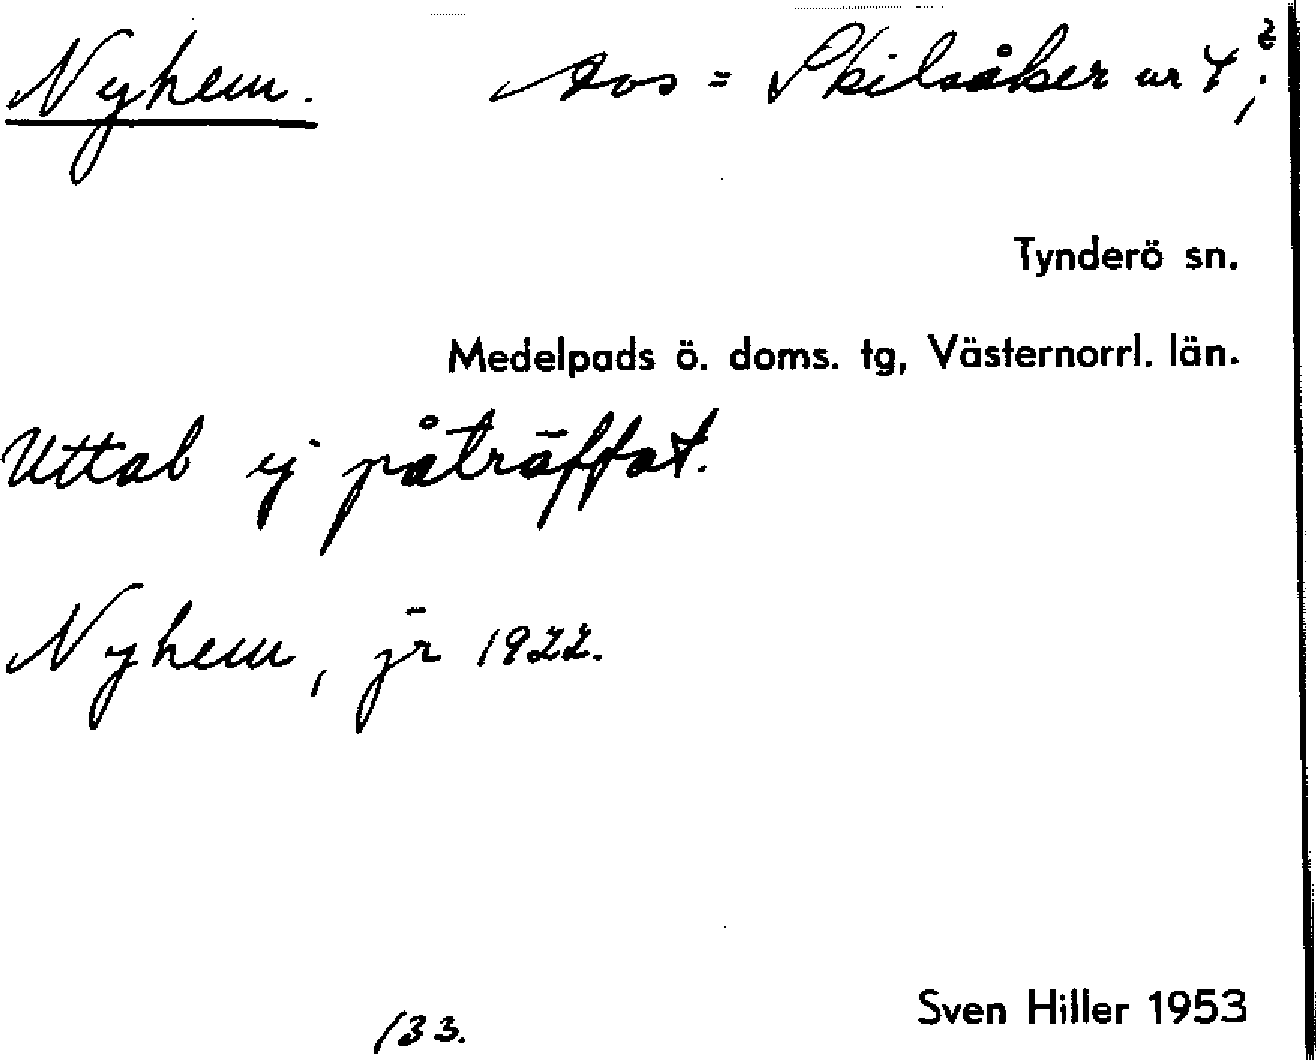 Nyhem. Avs = Skilsåker nr 4,2
Tynderö sn.
Medelpads ö. doms. tg, Västernorrl. län.
Uttal ej påträffat.
Nyhem, jr 1922.
133.
Sven Hiller 1953